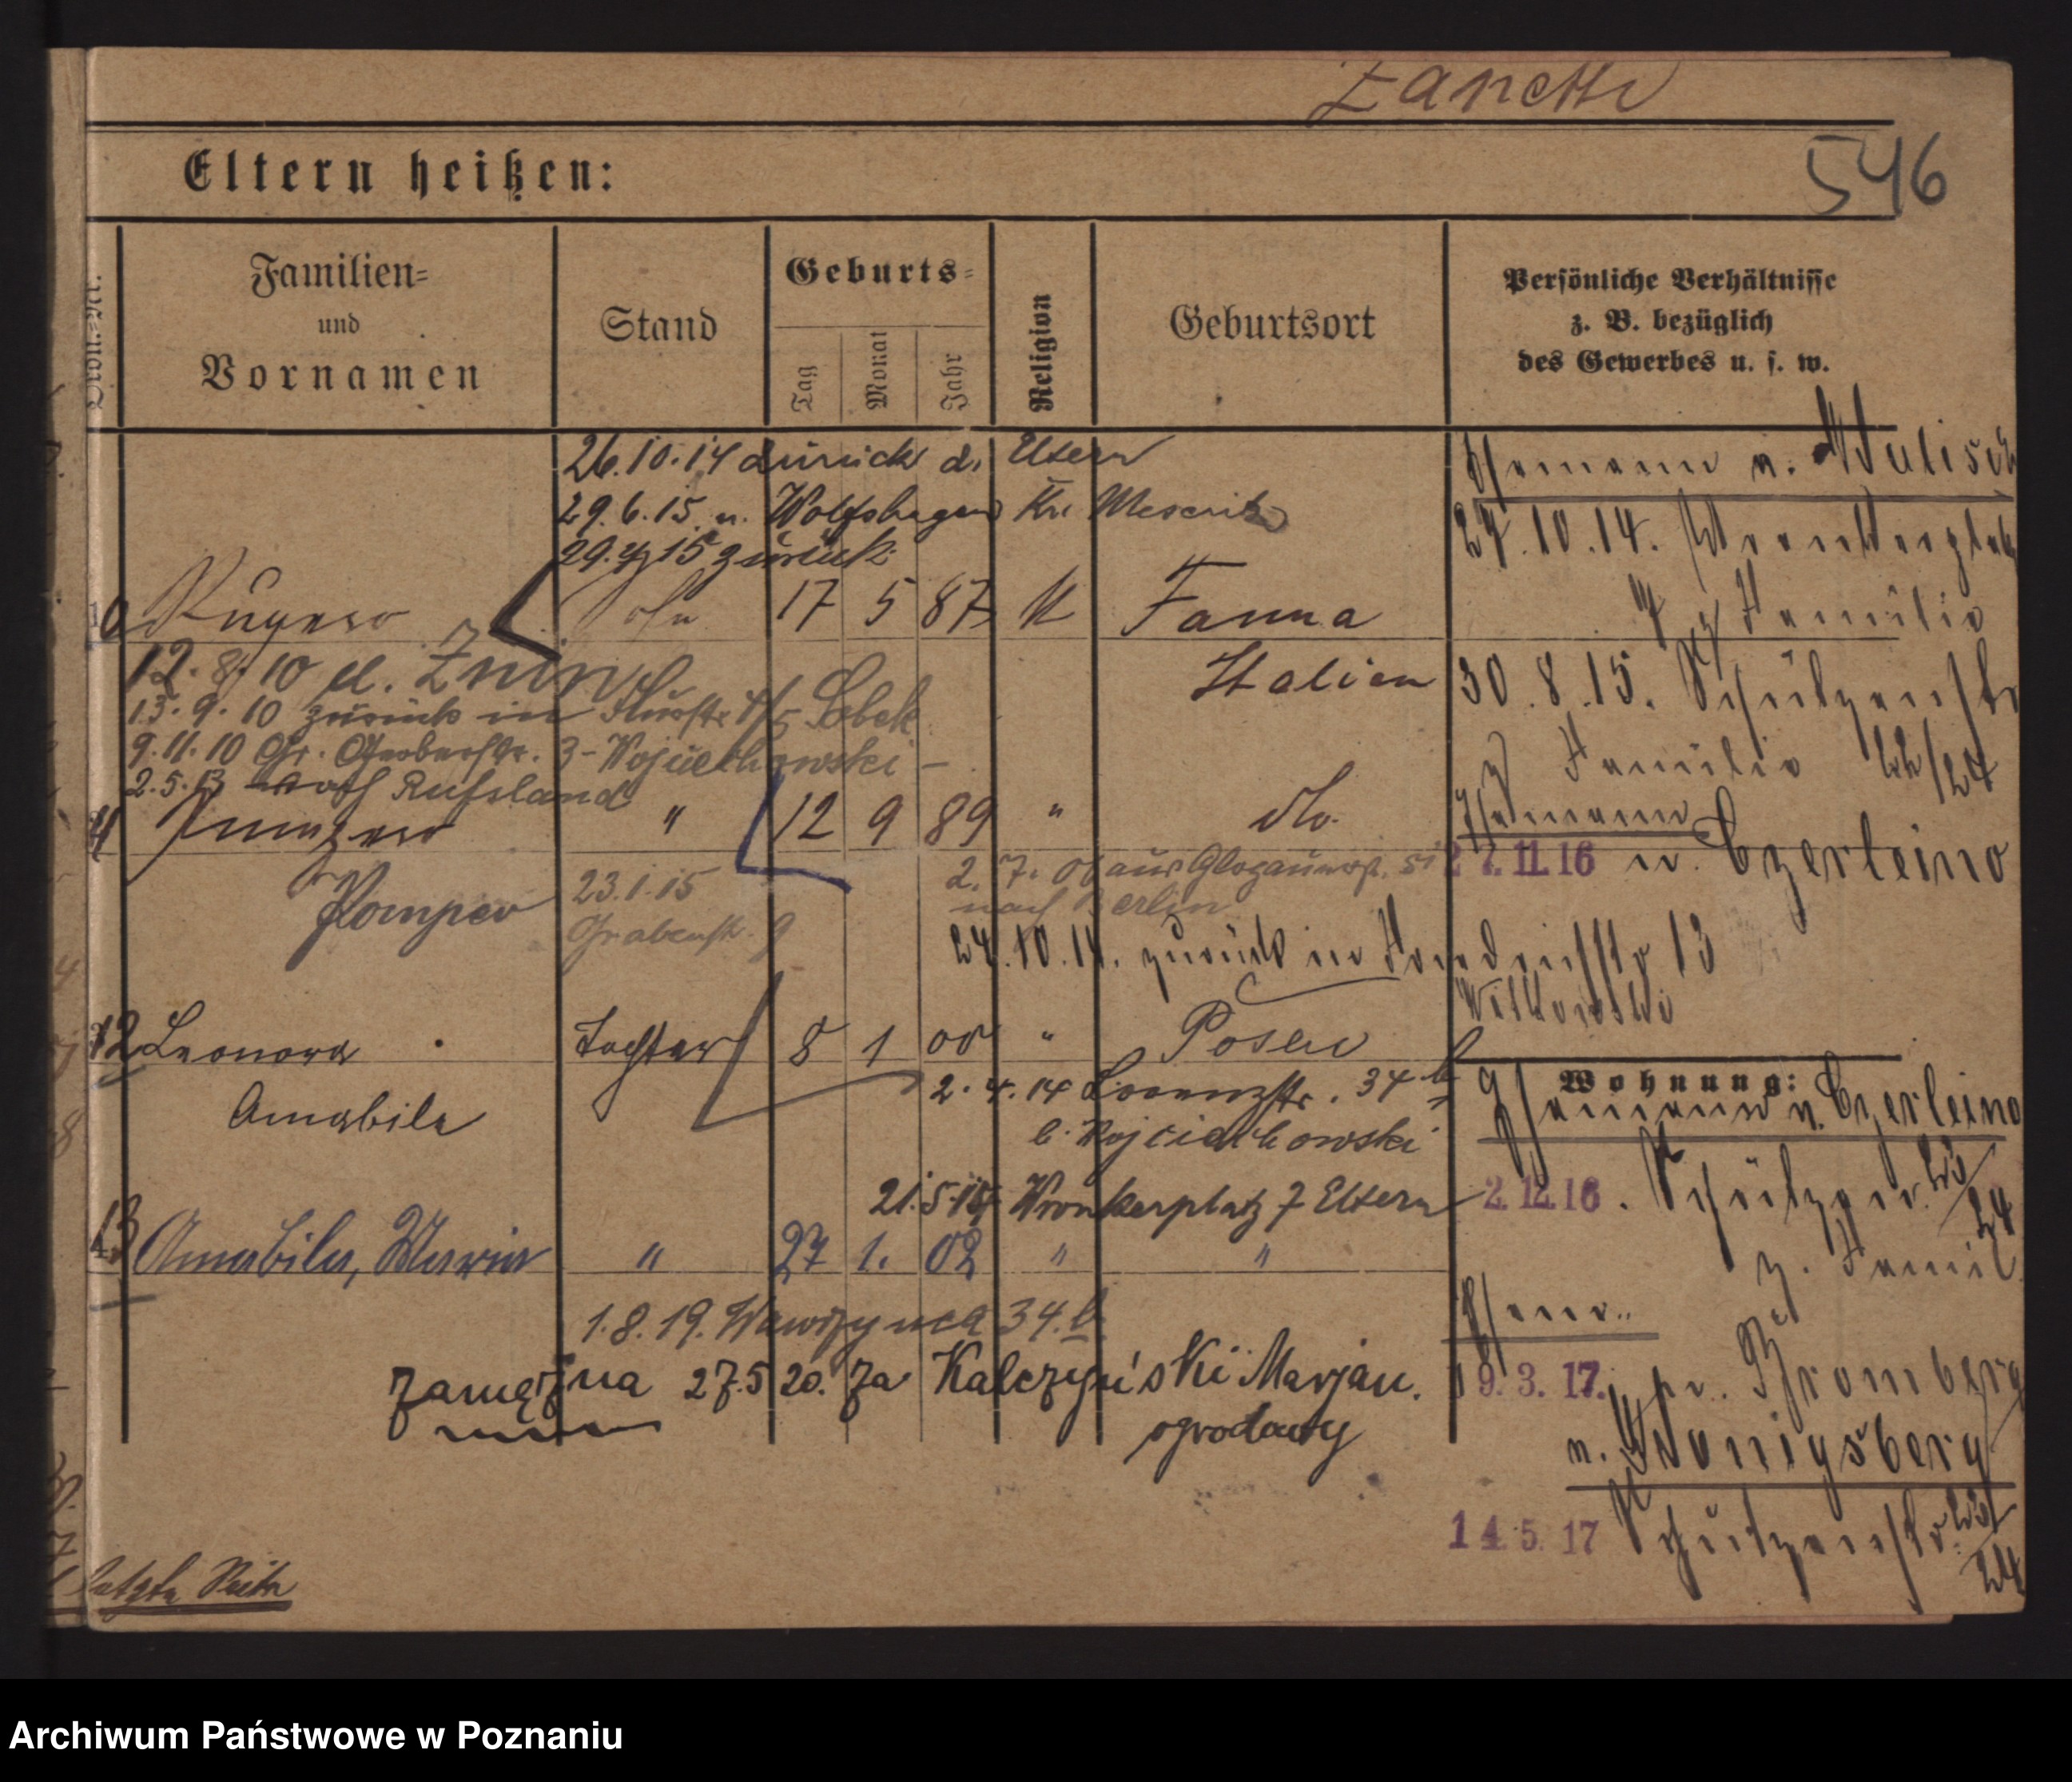 Zanetti
546
Eltern heißen:
Familien-
und
Vornamen
Stand
Geburts-
Tag
Monat
Jahr
Religion
Geburtsort
Persönliche Verhältnisse
z. B. bezüglich
des Gewerbes u. s. w.
26.10.14 zurück d. Eltern
29.6.15 n. Wolfshagen Kr. Meseritz
29.7.15 zurück
17 5 87 K Fanna
Italien
12.8.10 n. Znin
13.9.10 zurück in
9.11.10 Gr. Gerberstr. 3 - Wojciechowski -
2.5.13 nach Rußland
" 12 9 89 " do.
Pompeo
23.1.15
Grabenstr. 9
2.7.06 aus
nach Berlin
24.10.14. zurück in 13
Witkowski
12 Leonora Tochter 8 1 00 " Posen
Amabile
2.4.14 Lorenzstr. 34 b
b. Wojciechowski
21.5.15 Wronkerplatz 7 Eltern
13 Amabile, Maria " 27 1. 02 " "
1.8.19. Wawrzynca 34.b
zamężna 27.5 20. za Kalczyński Marjan.
ogrodowy
27.10.14. Wronkerplatz
z Familie
30.8.15. Schützenstr
z Familie 23/24
27.11.16 n. Czerleino
Wohnung:
n. Czerleino
2.12.16. Schützenstr. 23/24
z. Famil.
19.3.17. Bromberg
n. Königsberg
14.5.17 Schützenstr. 23/24
letzte Seite
Archiwum Państwowe w Poznaniu